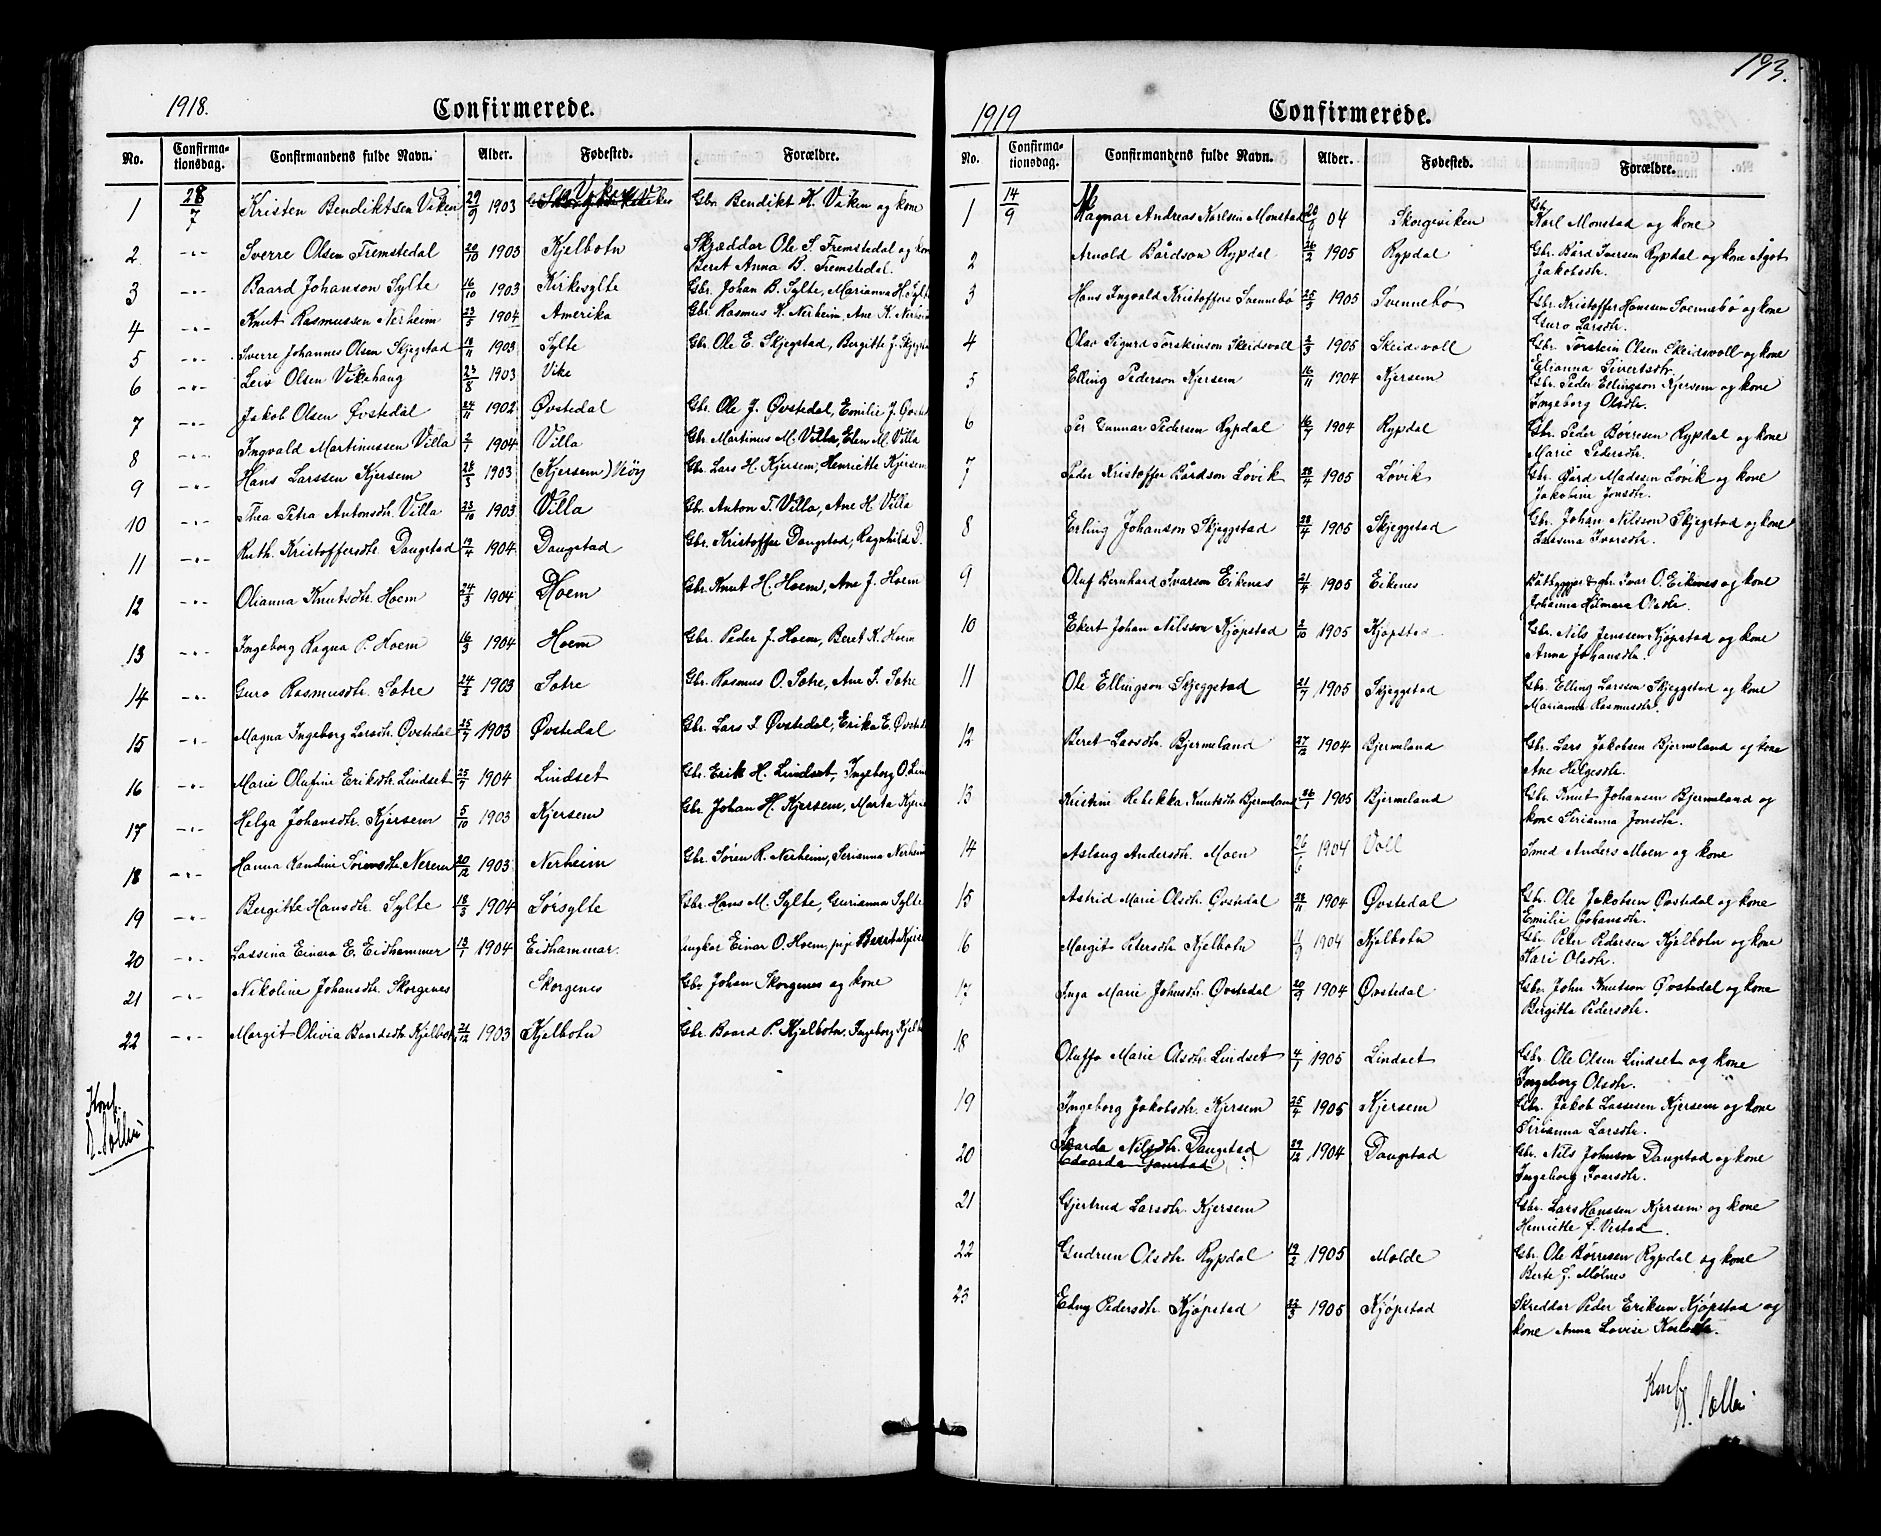 1918. Confirmerede.
No. Confirma-tionsdag. Confirmandens fulde Navn. Alder. Fødested. Forældre.
1 28/7 Kristen Bendiktsen Viken 29/9 1903 Gbr. Bendikt K. Viken og kone
2 -"- Sverre Olsen Fremstedal 20/10 1903 Kjelbotn Skræddar Ole S. Fremstedal og kone
Beret Anna B. Fremstedal.
3 -"- Baard Johanson Sylte 16/10 1903 Kirkesylte Gbr. Johan B. Sylte, Marianna H. Sylte
4 -"- Knut Rasmussen Nerheim 23/5 1904 Amerika Gbr. Rasmus K. Nerheim, Ane K. Nerheim
5 -"- Sverre Johannes Olsen Skjegstad 18/11 1903 Sylte Gbr. Ole E. Skjegstad, Birgitte J. Skjegstad
6 -"- Leiv Olsen Vikehaug 23/8 1903 Vike
7 -"- Jakob Olsen Øvstedal 24/11 1902 Øvstedal Gbr. Ole J. Øvstedal, Emilie J. Øvsted
8 -"- Ingvald Martinussen Villa 2/1 1904 Villa Gbr. Martinus M. Villa, Elen M. Villa
9 -"- Hans Larssen Kjersem 28/5 1903 (Kjersem) Vøy Gbr. Lars H. Kjersem, Henriette Kjersem
10 -"- Thea Petra Antonsdtr. Villa 23/10 1903 Villa Gbr. Anton T. Villa, Ane H. Villa
11 -"- Ruth Kristoffersdtr. Daugstad 19/4 1904 Daugstad Gbr. Kristoffer Daugstad, Ragnhild D.
12 -"- Olianna Knutsdtr. Hoem 24/3 1904 Hoem Gbr. Knut H. Hoem, Ane J. Hoem
13 -"- Ingeborg Ragna P. Hoem 16/3 1904 Hoem Gbr. Peder J. Hoem, Beret K. Hoem
14 -"- Guro Rasmusdtr. Sotre 24/5 1903 Sotre Gbr. Rasmus O. Sotre, Ane I. Sotre
15 -"- Magna Ingeborg Larsdtr. Øvstedal 25/7 1903 Øvstedal Gbr. Lars I. Øvstedal, Erika E. Øvsted
16 -"- Marie Olufine Eriksdtr. Lindset 25/7 1904 Lindset Gbr. Erik H. Lindset, Ingeborg O. Lind
17 -"- Helga Johansdtr. Kjersem 5/10 1903 Kjersem Gbr. Johan H. Kjersem, Marta Kjerse
18 -"- Hanna Kandine Sörensdtr. Nereim 20/12 1903 Nerheim Gbr. Søren R. Nerheim, Serianna Nerheim
19 -"- Bergitte Hansdtr. Sylte 18/3 1904 Sørsylte Gbr. Hans M. Sylte, Gurianna Sylte
20 -"- Lassina Einara E. Eidhammer 19/1 1904 Eidhammar. Ungkar Einar O. Hoem, pige Beret
21 -"- Nikoline Johansdtr. Skorgenes Skorgenes Gbr Johan Skorgenes og kone
22 -"- Margit Olivia Baardsdtr. Kjelbotn 21/12 1903 Kjelbotn Gbr. Baard P. Kjelbotn, Ingeborg Kjelb
Konf.
D. Sollie
193.
1919 Confirmerede.
No. Confirma-tionsdag. Confirmandens fulde Navn. Alder. Fødested. Forældre.
1 14/9 Magnar Andreas Karlsen Monstad 20/9 04 Skorgeviken Gbr. Karl Monstad og kone
2 Arnold Bårdson Rypdal 26/2 1905 Rypdal Gbr. Bård Iversen Rypdal og kone Ågot
Jakobsdtr.
3 Hans Ingvald Kristoffers Svennebø 25/3 1905 Svennebø Gbr. Kristoffer Hansen Svennebø og kone
Guro Larsdtr.
4 Olav Sigurd Torsteinson Skeidsvoll 2/3 1905 Skeidsvoll Gbr. Torstein Olsen Skeidsvoll og kone
Elianna Sivertsdtr.
5 Elling Pederson Kjersem 16/11 1904 Kjersem Gbr. Peder Ellingson Kjersem og kone
Ingeborg Olsdtr.
6 Per Gunnar Pedersen Rypdal 16/7 1904 Rypdal Gbr. Peder Børresen Rypdal og kone
Marie Pedersdtr.
7 Peder Kristoffer Bårdson Løvik 28/4 1905 Løvik Gbr. Bård Madesen Løvik og kone
Jakobine Jonsdtr.
8 Erling Johanson Skjeggstad 28/4 1905 Skjeggstad Gbr. Johan Nilson Skjegstad og kone
Lassina Ivarsdtr.
9 Oluf Bernhard Ivarson Eikenes 21/4 1905 Eikenes Båtbyggjar & gbr. Ivar O. Eikenes og kone
Johanna Hilmara Olsdtr.
10 Ekert Johan Nilsson Kjøpstad 2/10 1905 Kjøpstad Gbr. Nils Jenssen Kjøpstad og kone
Anna Johansdtr.
11 Ole Ellingson Skjeggstad 21/7 1905 Skjeggstad Gbr. Elling Larssen Skjeggstad og kone
Marianna Rasmusdtr.
12 Beret Larsdtr. Bjermeland 27/12 1904 Bjermeland Gbr. Lars Jakobsen Bjermeland og kone
Ane Helgesdtr.
13 Kristine Rebekka Knutsdtr Bjermeland 26/1 1905 Bjermeland Gbr. Knut Johansen Bjermeland og
kone Sirianna Jonsdtr.
14 Aslaug Andersdtr. Moen 26/6 1904 Voll Smed Anders Moen og kone
15 Astrid Marie Olsdtr. Øvstedal 28/11 1904 Øvstedal Gbr. Ole Jakobsen Øvstedal og kone
Emilie Johansdtr.
16 Margit Petersdtr Kjelbotn 11/9 1904 Kjelbotn Gbr. Peter Pedersen Kjelbotn og kone
Kari Olsdtr.
17 Inga Marie Johnsdtr. Øvstedal 20/9 1904 Øvstedal Gbr. John Knutson Øvstedal og kone
Bergitta Pedersdtr.
18 Oluffa Marie Olsdtr. Lindset 4/7 1905 Lindset Gbr. Ole Olsen Lindset og kone
Ingeborg Olsdtr.
19 Ingeborg Jakobsdtr. Kjersem 25/4 1905 Kjersem Gbr. Jakob Lassesen Kjersem og kone
Sirianna Larsdtr.
20 Nilsdtr. Daugstad 29/12 1904 Daugstad Gbr. Nils Johnson Daugstad og kone
Ingeborg Ivarsdtr.
21 Gjertrud Larsdtr. Kjersem Gbr. Lars Hanssen Kjersem og kone
Henriette J. Vestad
22 Gudrun Olsdtr. Rypdal 19/2 1905 Molde Gbr. Ole Børresen Rypdal og kone
Berte J. Mølnes
23 Edny Pedersdtr. Kjøpstad 22/3 1905 Kjøpstad Skreddar Peder Eriksen Kjøpstad og
kone Anna Lovise Karlsdtr.
Konf.
D. Sollie